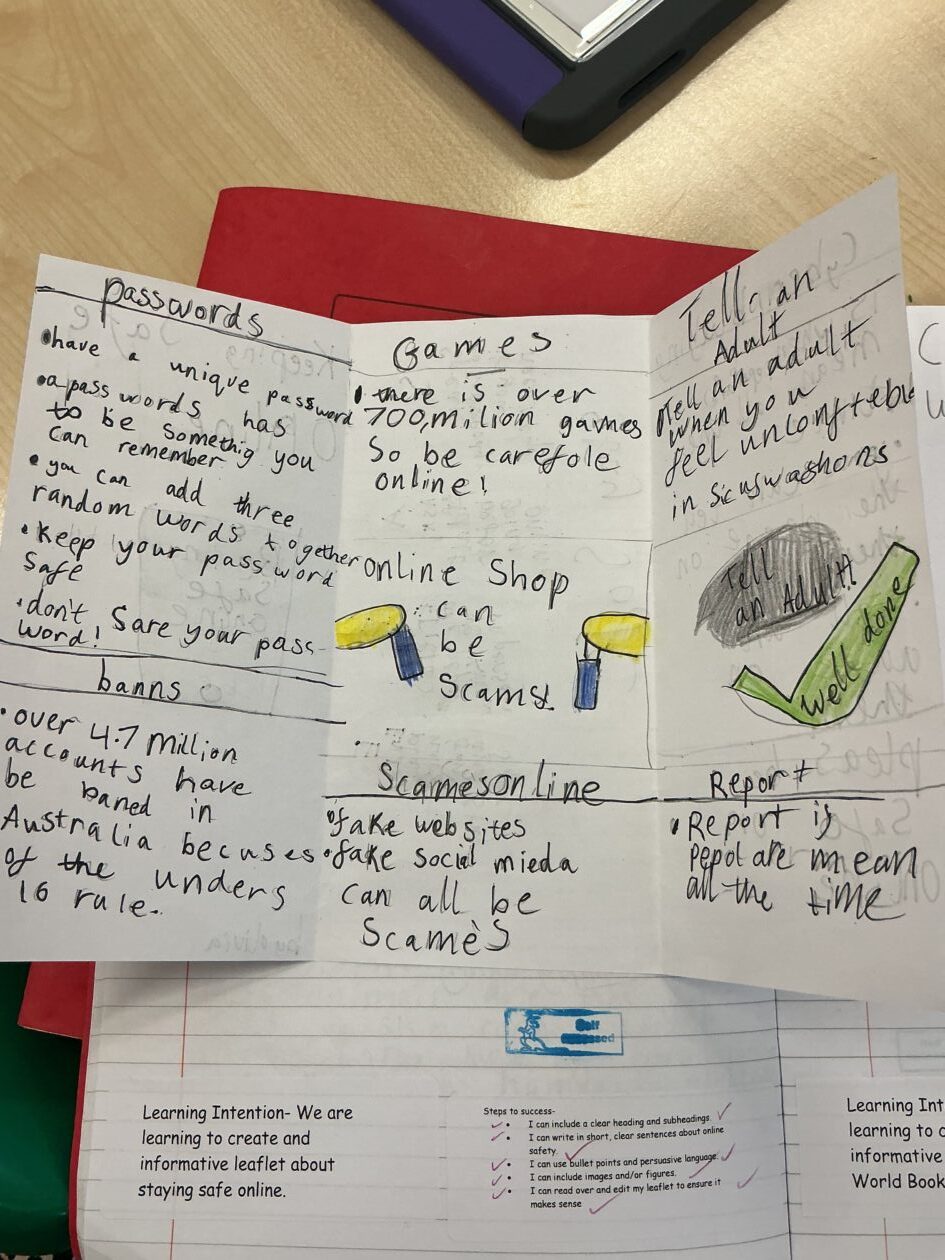 passwords
•have a unique password
•a pass words has
to be somethig you
can remember
•you can add three
random words together
•Keep your password
safe
•don't Sare your pass-
word!
banns
•over 4.7 million
accounts have
be baned in
Australia becuses
of the unders
16 rule.
Games
• there is over
700,milion games
So be carefole
online!
online Shop
can
be
Scams!
Scamesonline
•fake websites
•fake social mieda
can all be
Scames
Tell an
Adult
Tell an adult
when you
feel unconfteble
in sicuswashons
Tell
an Adult!
well done
Report
•Report if
pepol are mean
all the time
Self
Assessed
Learning Intention- We are
learning to create and
informative leaflet about
staying safe online.
Steps to success-
• I can include a clear heading and subheadings.
• I can write in short, clear sentences about online
safety.
• I can use bullet points and persuasive language.
• I can include images and/or figures.
• I can read over and edit my leaflet to ensure it
makes sense
Learning Int
learning to c
informative
World Book